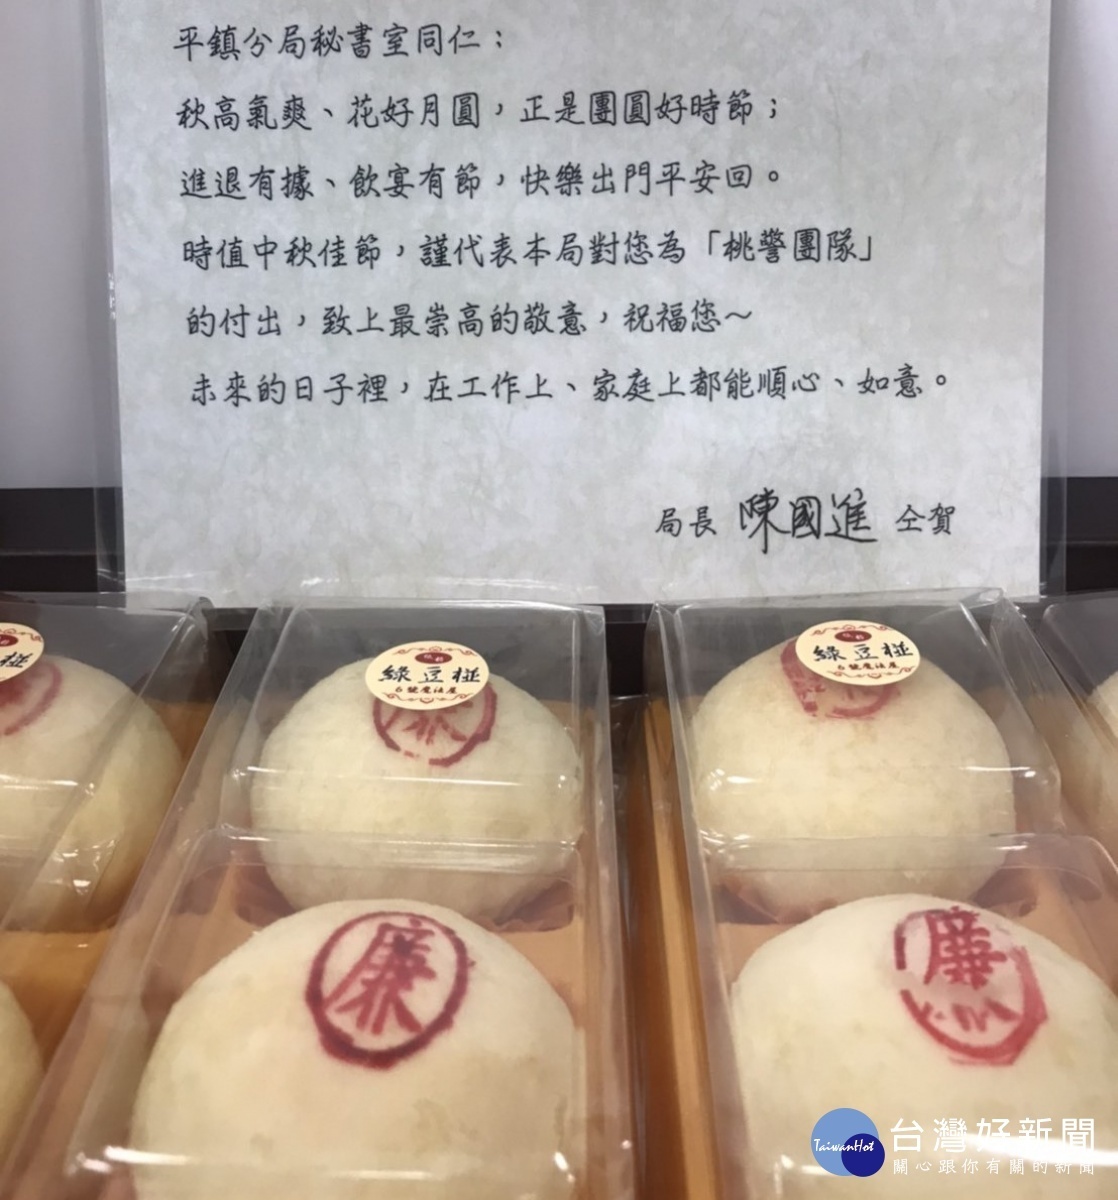 平鎮分局秘書室同仁：
秋高氣爽、花好月圓，正是團圓好時節；
進退有據、飲宴有節，快樂出門平安回。
時值中秋佳節，謹代表本局對您為「桃警團隊」
的付出，致上最崇高的敬意，祝福您～
未來的日子裡，在工作上、家庭上都能順心、如意。
局長 陳國進 仝賀
椪
綠豆椪
6號魔法屋
綠豆椪
6號魔法屋
廉
廉
TaiwanHot
台灣好新聞
關心跟你有關的新聞